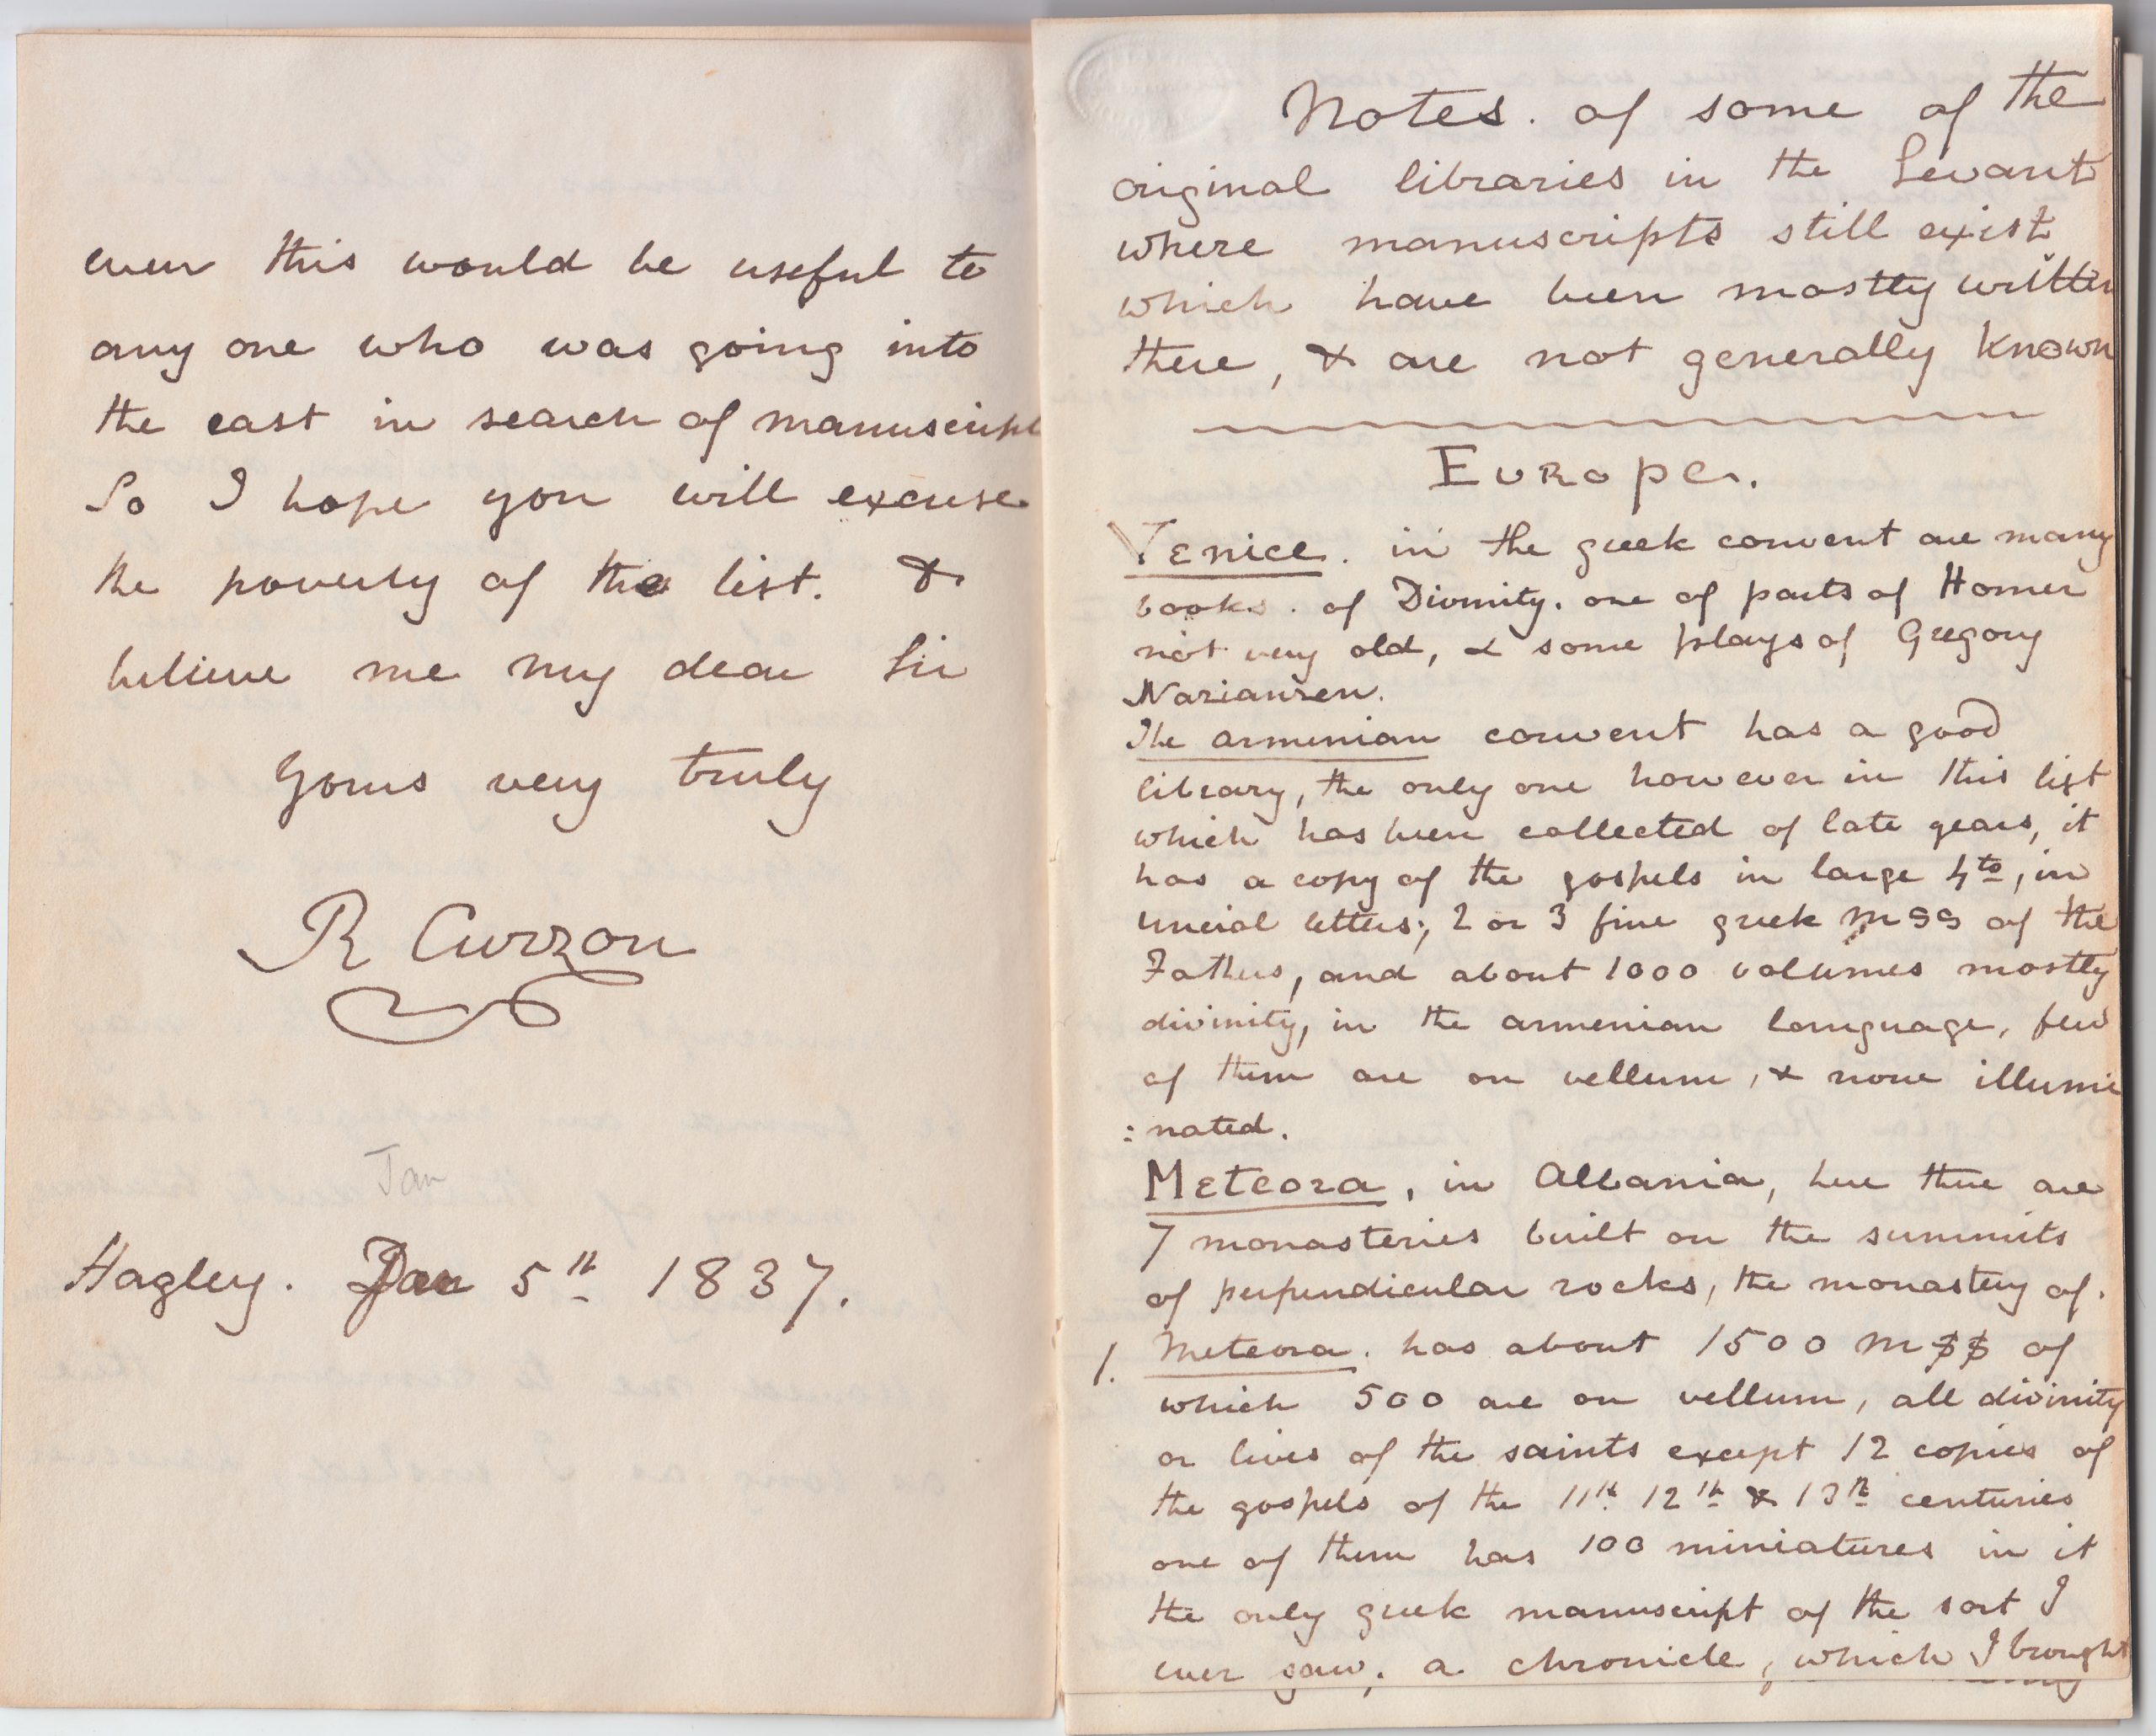 even this would be useful to
any one who was going into
the east in search of manuscript
So I hope you will excuse
the poverty of the list. &
believe me my dear Sir
Yours very truly
R Curzon
Jan
Hagley. Jan 5th 1837.
Notes. of some of the
original libraries in the Levant
where manuscripts still exist
which have been mostly written
there, & are not generally known
Europe.
Venice. in the greek convent are many
books. of Divinity. one of parts of Homer
not very old, & some plays of Gregory
Nazianzen.
The armenian convent has a good
library, the only one however in this list
which has been collected of late years, it
has a copy of the gospels in large 4to, in
uncial letters; 2 or 3 fine greek mss of the
Fathers, and about 1000 volumes mostly
divinity, in the armenian language, few
of them are on vellum, & none illumi
: nated.
Meteora, in Albania, here there are
7 monasteries built on the summits
of perpendicular rocks, the monastery of.
1. Meteora. has about 1500 mss of
which 500 are on vellum, all divinity
or lives of the saints except 12 copies of
the gospels of the 11th 12th & 13th centuries
one of them has 100 miniatures in it
the only greek manuscript of the sort I
ever saw; a chronicle, which I brought